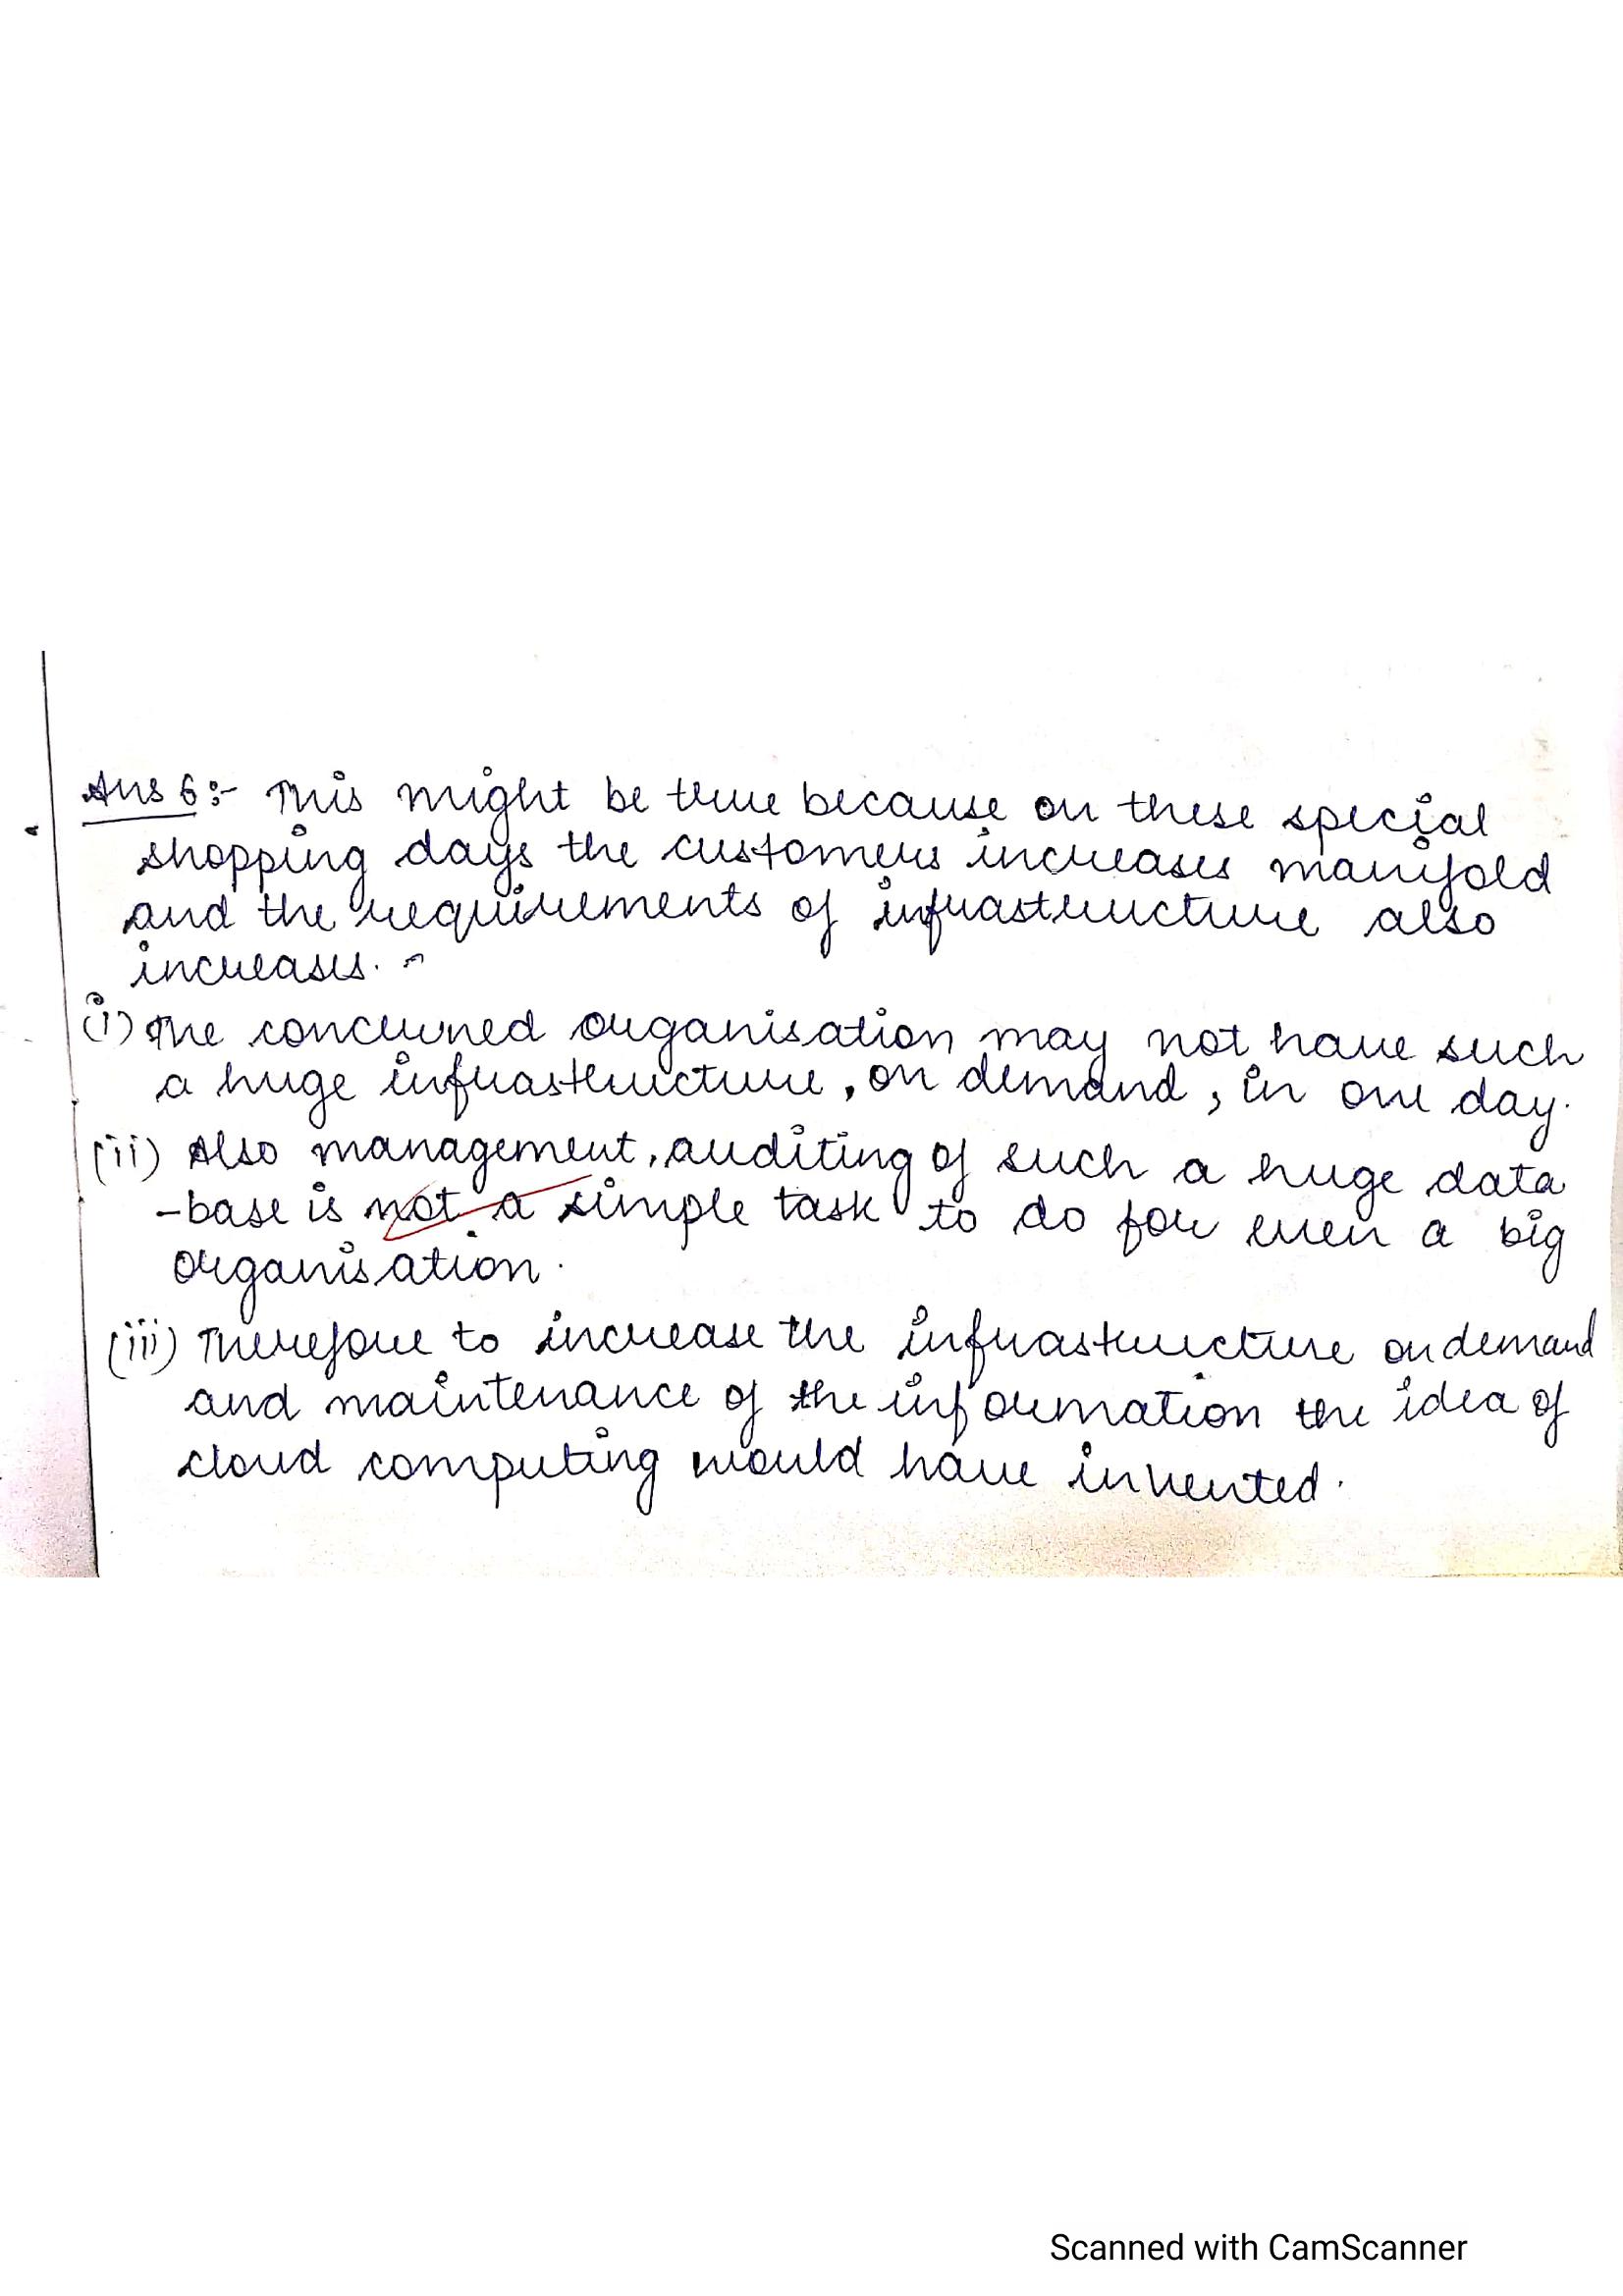 Ans 6:- This might be true because on these special
shopping days the customers increases manifold
and the requirements of infrastructure also
increases.
(i) The concerned organisation may not have such
a huge infrastructure, on demand, in one day.
(ii) Also management, auditing of such a huge data
-base is not a simple task to do for even a big
organisation.
(iii) Therefore to increase the infrastructure on demand
and maintenance of the information the idea of
cloud computing would have invented.
Scanned with CamScanner